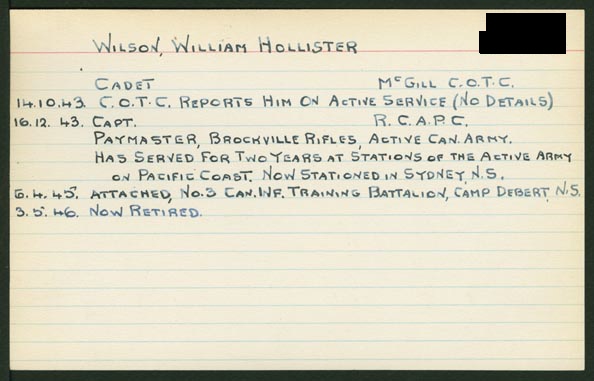 WILSON, WILLIAM HOLLISTER
CADET McGILL C.O.T.C.
14.10.43. C.O.T.C. REPORTS HIM ON ACTIVE SERVICE (NO DETAILS)
16.12.43. CAPT. R.C.A.P.C.
PAYMASTER, BROCKVILLE RIFLES, ACTIVE CAN. ARMY.
HAS SERVED FOR TWO YEARS AT STATIONS OF THE ACTIVE ARMY
ON PACIFIC COAST. NOW STATIONED IN SYDNEY, N.S.
6.4.45. ATTACHED, NO.3 CAN. INF. TRAINING BATTALION, CAMP DEBERT, N.S.
3.5.46. NOW RETIRED.